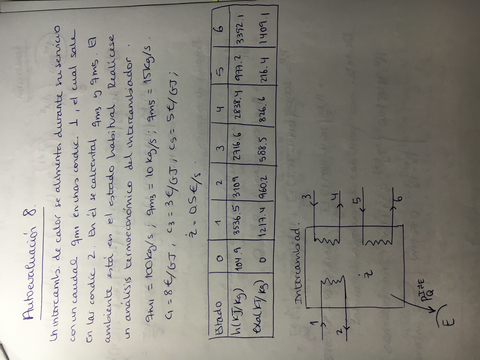 Autoevaluación 8
Un intercamb. de calor se alimenta durante su servicio
con un caudal qm1 en unas condic. 1, el cual sale
en las condic 2. En él se calienta qm3 y qm5. El
ambiente está en el estado habitual. Realícese
un análisis termoeconómico del intercambiador.
qm1 = 100 kg/s; qm3 = 10 kg/s; qm5 = 15 kg/s.
c1 = 8 €/GJ; c3 = 3 €/GJ; c5 = 5 €/GJ;
ż = 0.5 €/s
Estado 0 1 2 3 4 5 6
h(KJ/Kg) 104.9 3536.5 3109 2716.6 2838.4 977.2 3392.1
exa(KJ/kg) 0 1217.4 960.2 588.5 826.6 216.4 1409.1
Intercambiad.
1
2
3
4
5
6
ż
E